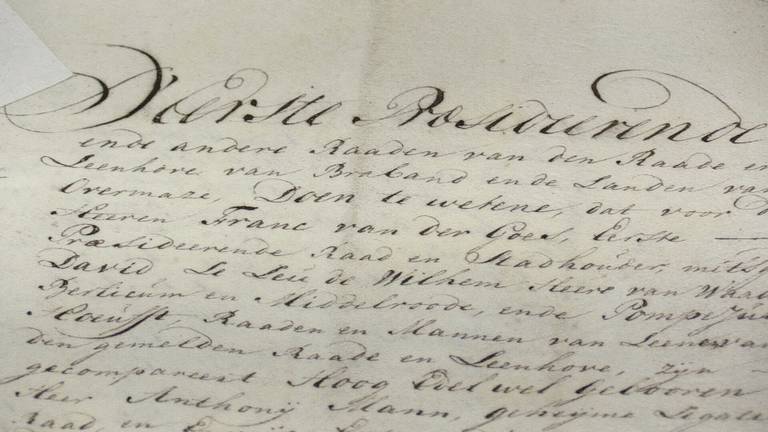 D'Eerste Præsideerende
ende andere Raaden van den Raade en
Leenhove van Braband ende Landen van
Overmaze, Doen te wetene, dat voor d
Heeren Franc van der Goes, Eerste
Præsideerende Raad en Stadhouder, mitsg
David Le Leu de Wilhem Heere van Waal
Berlicum en Middelroode, ende Pompejus
Hoeufft, Raaden en Mannen van Leene van
den gemelden Raade en Leenhove, zijn
gecompareert Hoog Edel wel gebooren
Heer Anthonij Mann, geheijme Legatie
Raad, en